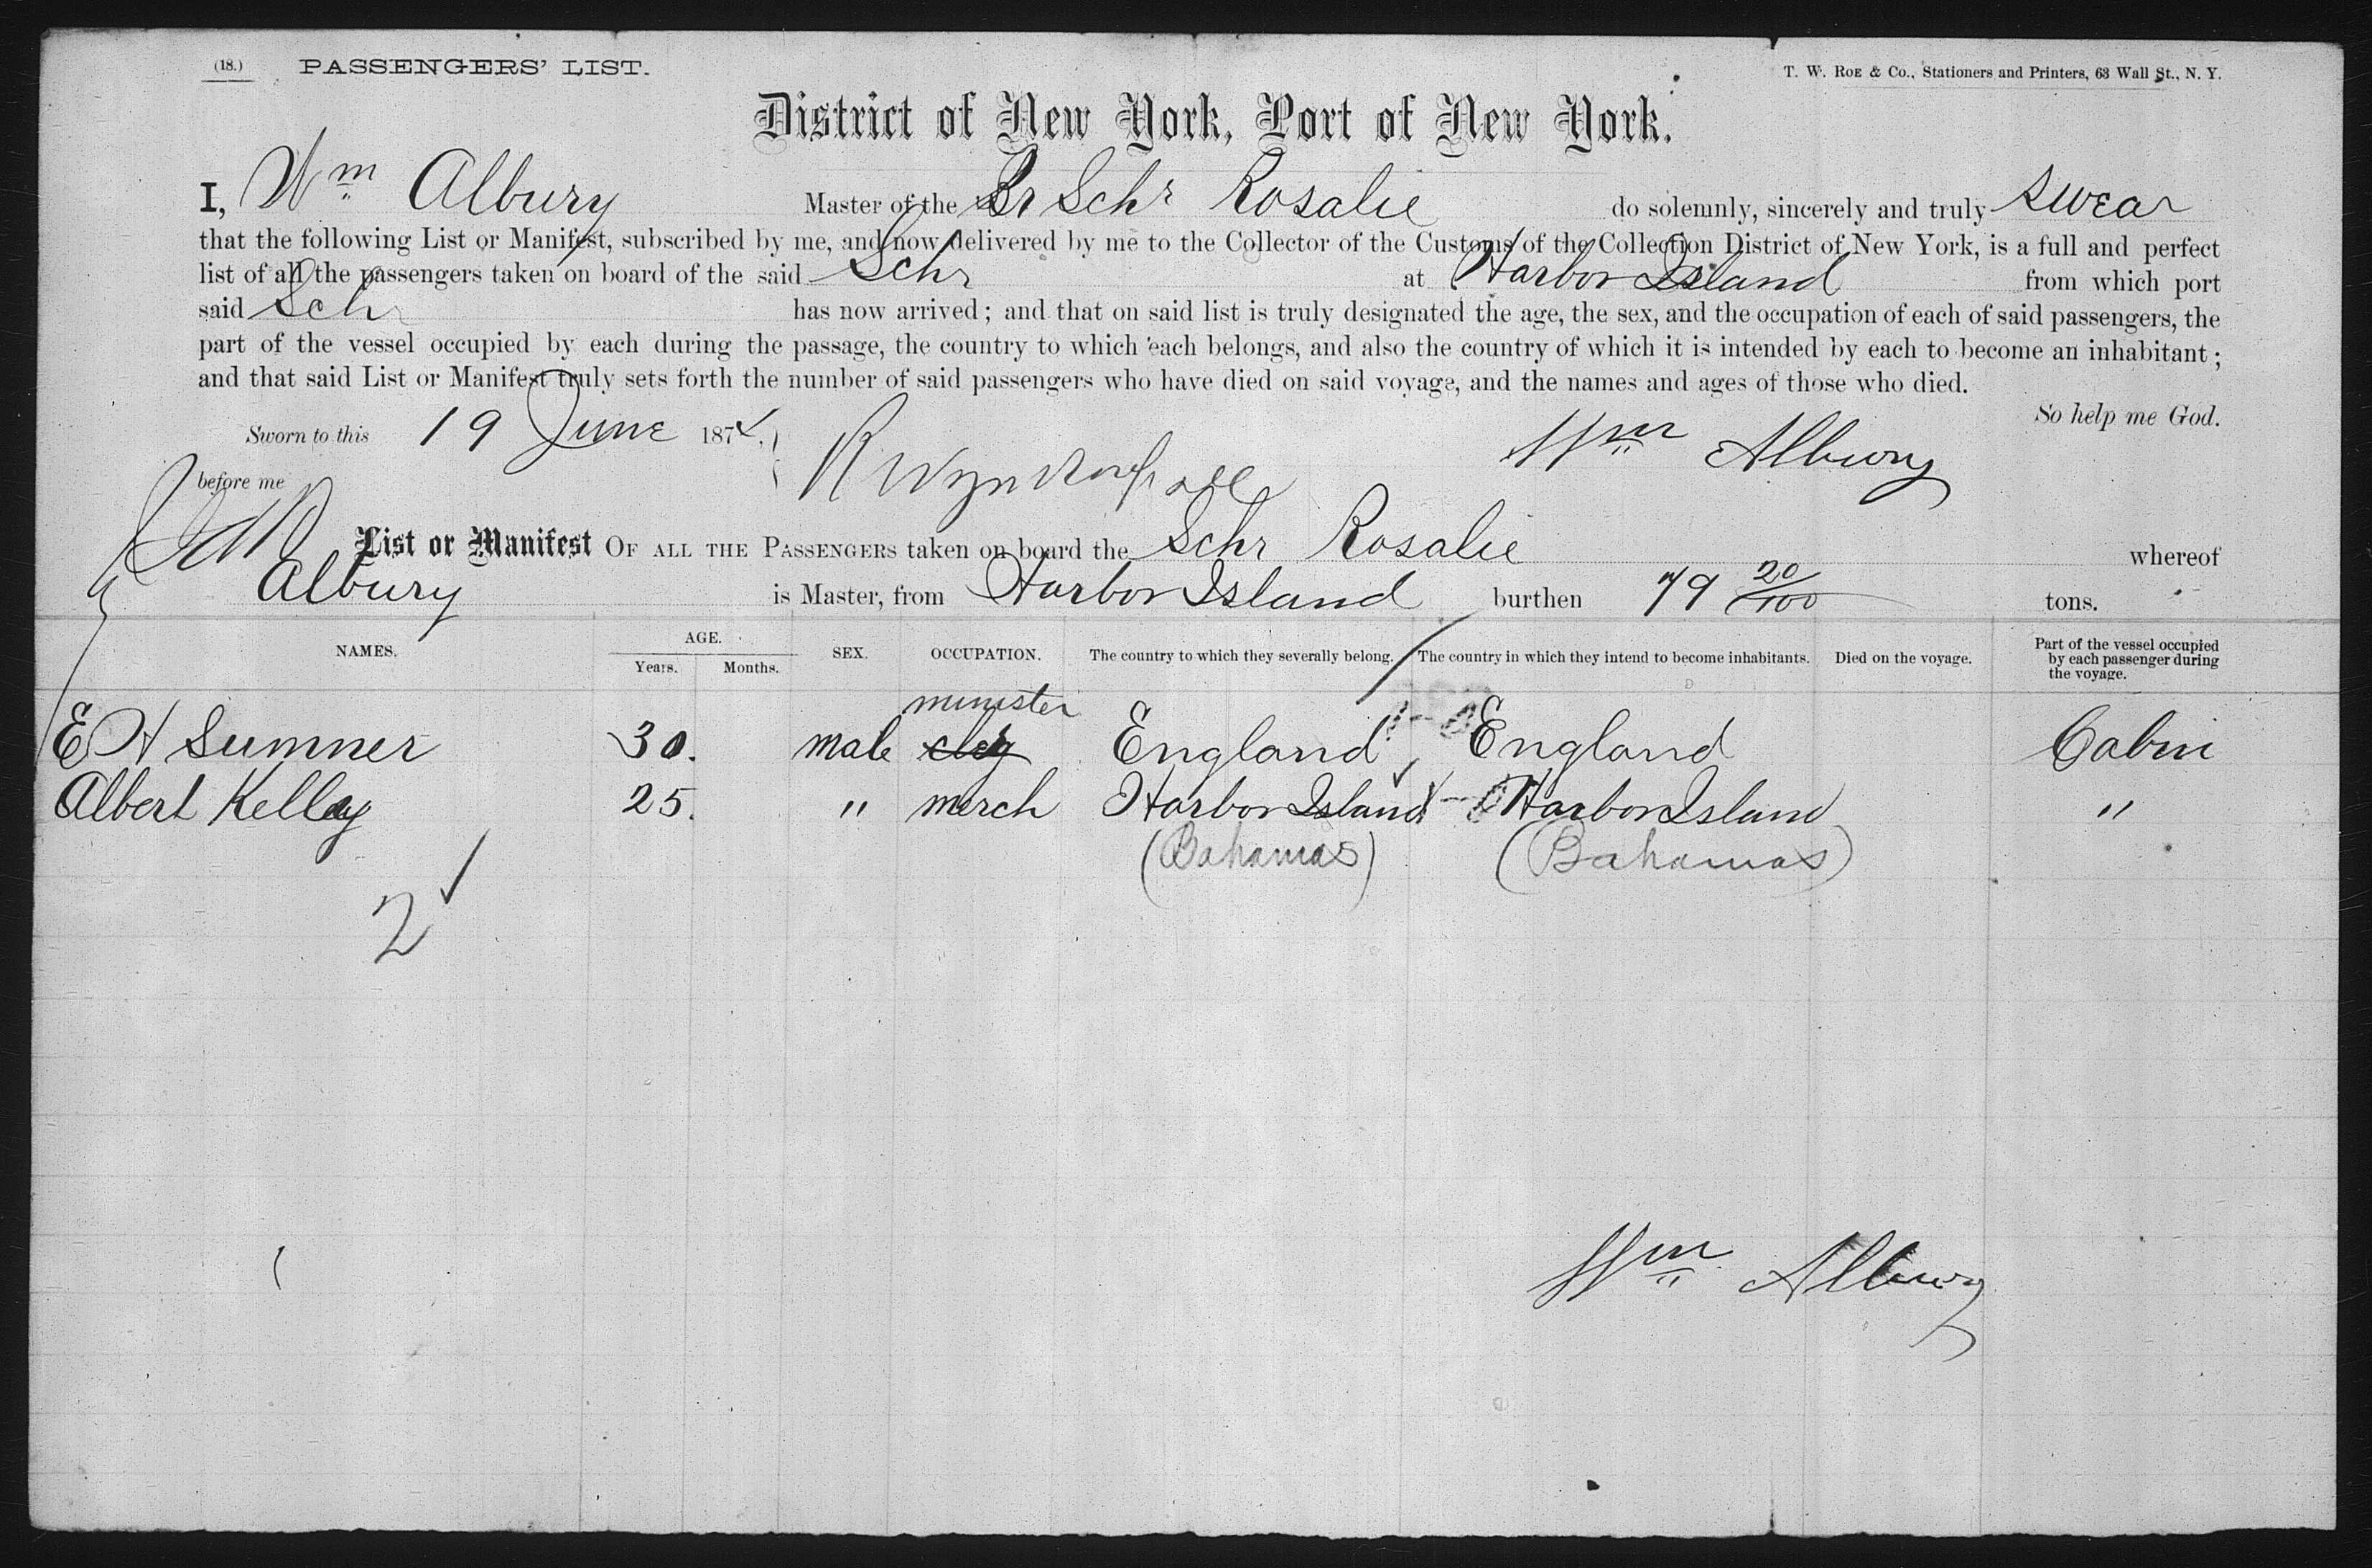 (18.) PASSENGERS' LIST. T. W. ROE & Co., Stationers and Printers, 63 Wall St., N. Y.
District of New York, Port of New York.
I, Wm Albury Master of the Br Schr Rosalie do solemnly, sincerely and truly swear
that the following List or Manifest, subscribed by me, and now delivered by me to the Collector of the Customs of the Collection District of New York, is a full and perfect
list of all the passengers taken on board of the said Schr at Harbor Island from which port
said Schr has now arrived; and that on said list is truly designated the age, the sex, and the occupation of each of said passengers, the
part of the vessel occupied by each during the passage, the country to which each belongs, and also the country of which it is intended by each to become an inhabitant;
and that said List or Manifest truly sets forth the number of said passengers who have died on said voyage, and the names and ages of those who died.
So help me God.
Sworn to this 19 June 187
Wm Albury
before me
List or Manifest OF ALL THE PASSENGERS taken on board the Schr Rosalie whereof
Albury is Master, from Harbor Island burthen 79 20/100 tons.
NAMES. AGE. Years. Months. SEX. OCCUPATION. The country to which they severally belong. The country in which they intend to become inhabitants. Died on the voyage. Part of the vessel occupied by each passenger during the voyage.
minister
E H Sumner 30. male England England Cabin
Albert Kelley 25. " merch Harbor Island Harbor Island "
(Bahamas) (Bahamas)
2
Wm Albury